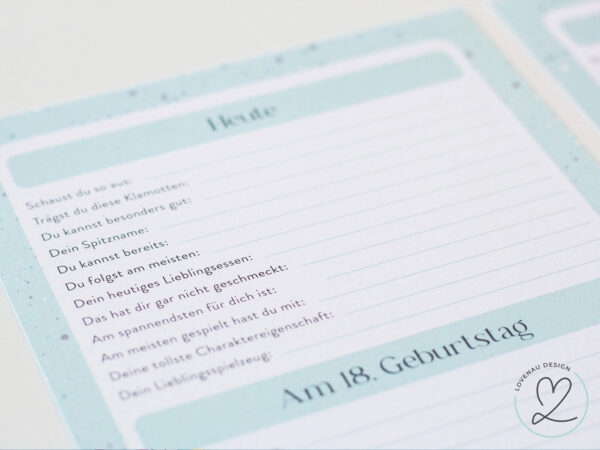 Heute
Schaust du so aus:
Trägst du diese Klamotten:
Du kannst besonders gut:
Dein Spitzname:
Du kannst bereits:
Du folgst am meisten:
Dein heutiges Lieblingsessen:
Das hat dir gar nicht geschmeckt:
Am spannendsten für dich ist:
Am meisten gespielt hast du mit:
Deine tollste Charaktereigenschaft:
Dein Lieblingsspielzeug:
Am 18. Geburtstag
LOVENAU DESIGN